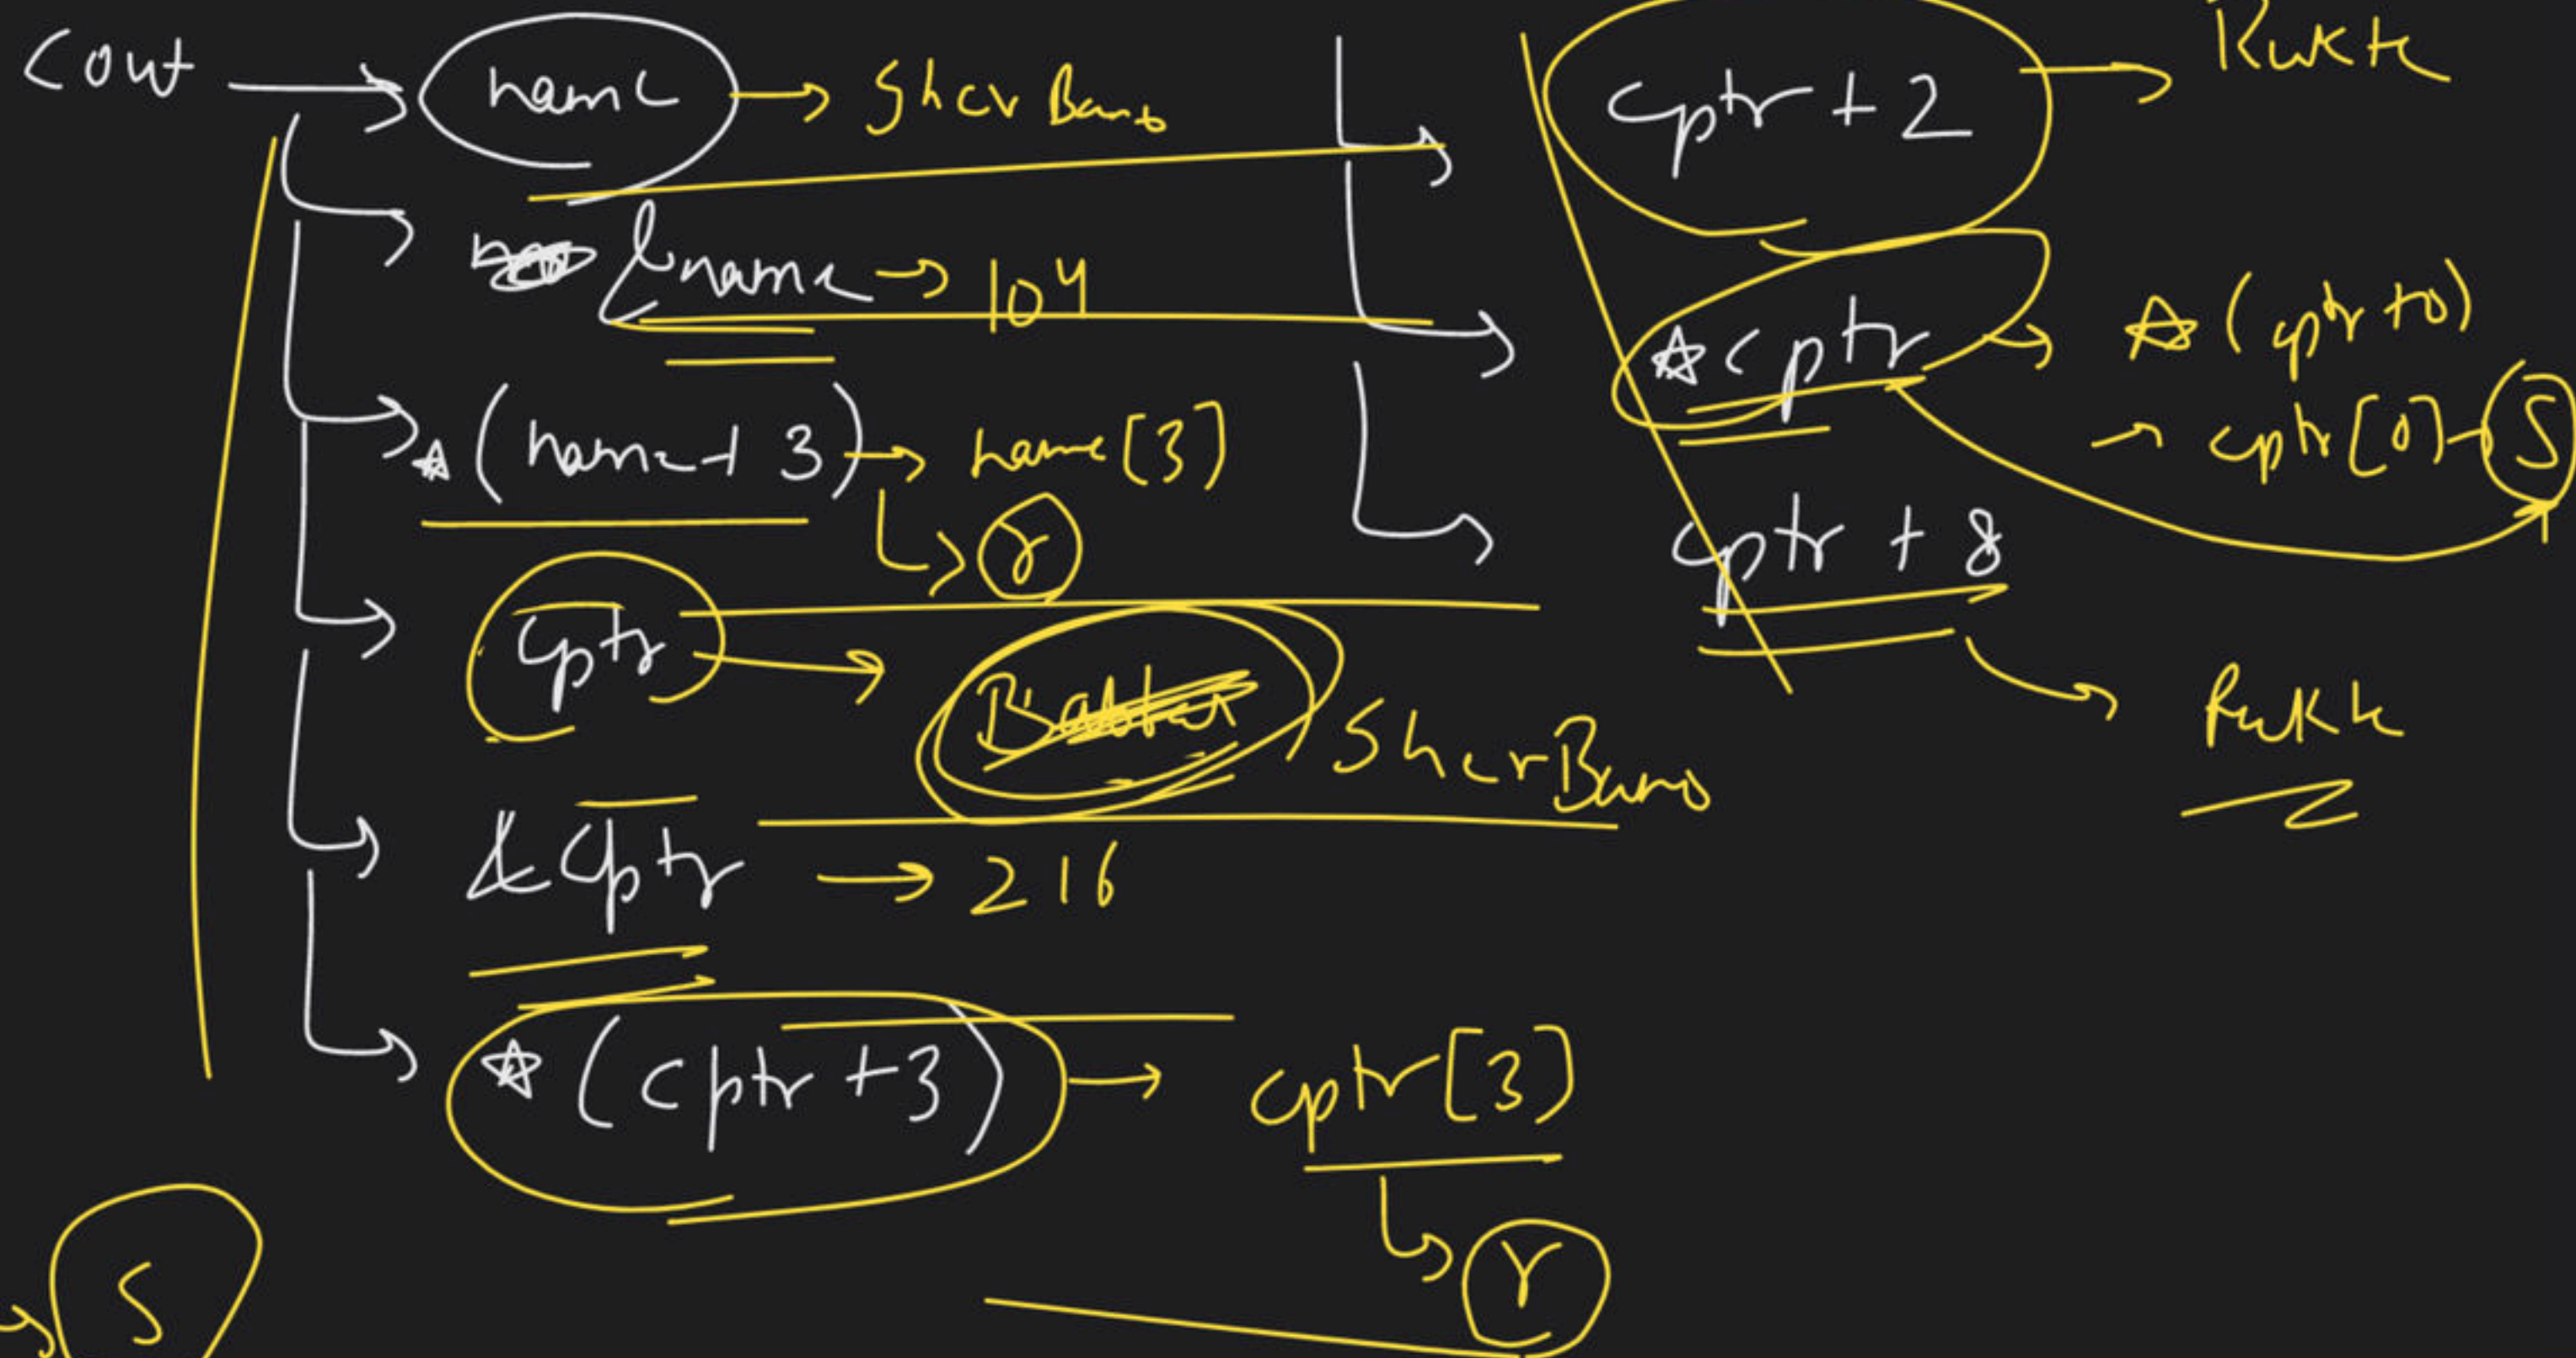 cout → name → SherBano
&name → 104
*(name+3) → name[3]
↳ r
cptr → SherBano
&cptr → 216
*(cptr+3) → cptr[3]
↳ r
S
cptr + 2 → Rukk
*cptr → *(cptr+0)
→ cptr[0] → S
cptr + 8
Rukk